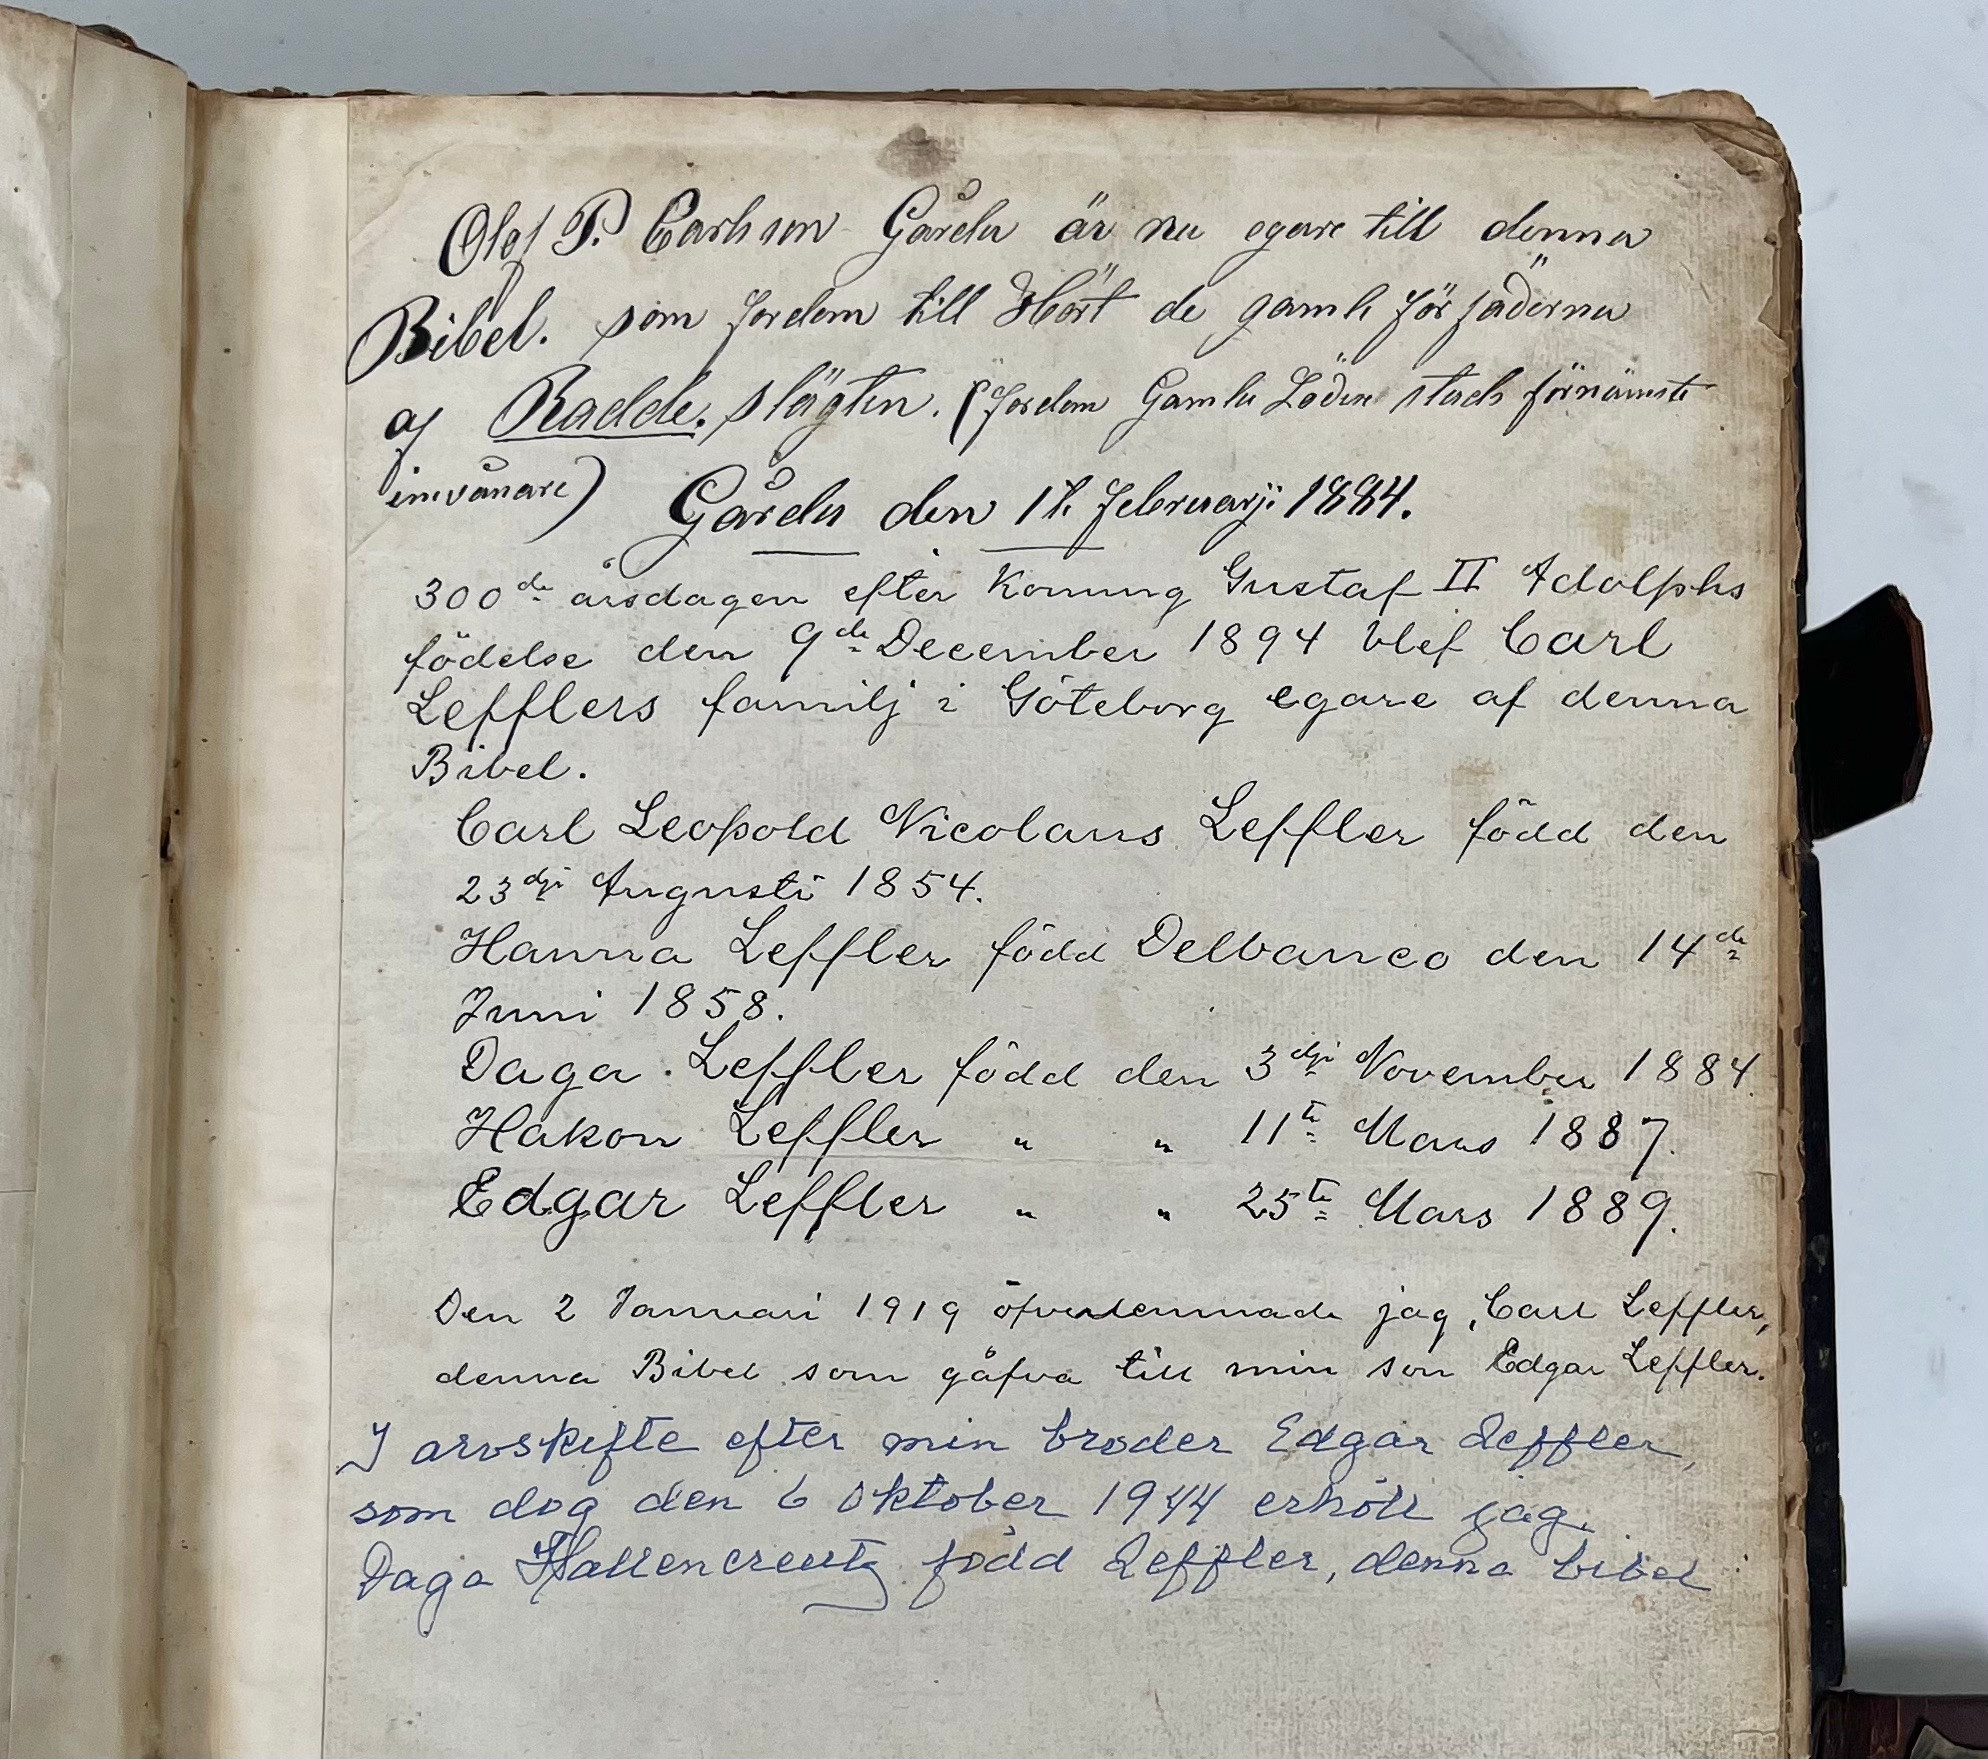 Olof P. Carlsson Gårda är nu egare till denna
Bibel. som fordom till Hört de gamla förfäderna
af Radde. slägten. (fordom Gamla Löden stads förnämste
invånare) Gårda den 17. februarji 1884.
300de årsdagen efter Konung Gustaf II Adolphs
födelse den 9de December 1894 blef Carl
Lefflers familj i Göteborg egare af denna
Bibel.
Carl Leopold Nicolaus Leffler född den
23dje Augusti 1854.
Hanna Leffler född Delbanco den 14de
Juni 1858.
Daga Leffler född den 3dje November 1884.
Hakon Leffler " " 11te Mars 1887.
Edgar Leffler " " 25te Mars 1889.
Den 2 Januari 1919 öfverlemnade jag, Carl Leffler,
denna Bibel som gåfva till min son Edgar Leffler.
I arvskifte efter min broder Edgar Leffler,
som dog den 6 oktober 1944 erhöll jag.
Daga Hallencreutz född Leffler, denna bibel